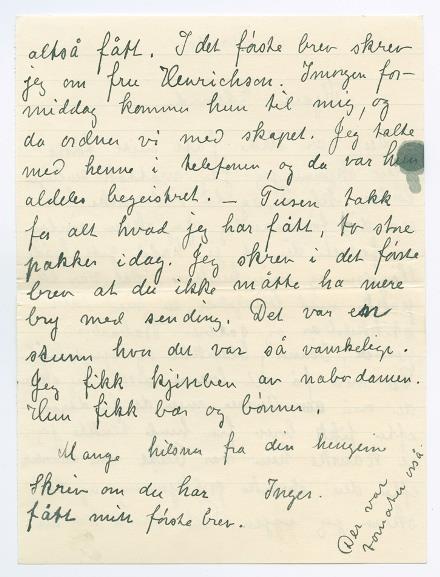 altså fått. I det første brev skrev
jeg om fru Henrichson. Imorgen for-
middag kommer hun til mig, og
da ordner vi med skapet. Jeg talte
med henne i telefonen, og da var hun
aldeles begeistret. – Tusen takk
for alt hvad jeg har fått, to store
pakker idag. Jeg skrev i det første
brev at du ikke måtte ha mere
bry med sending. Det var en
skam hvor det var så vanskelige.
Jeg fikk kjisben av nabodamen.
Hun fikk bær og bønner.
Mange hilsner fra din hengivne
Inger.
Skriv om du har
fått mitt første brev.
Der var
tomater også.